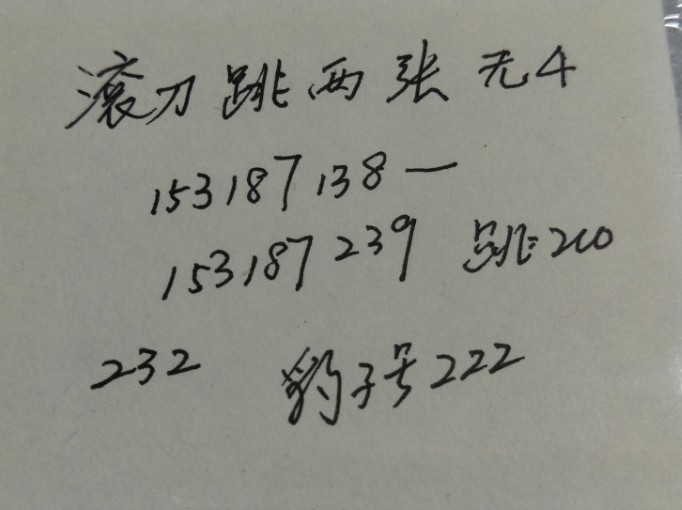 滚刀跳两张无4
153187138一
153187239 跳200
232 豹子号222